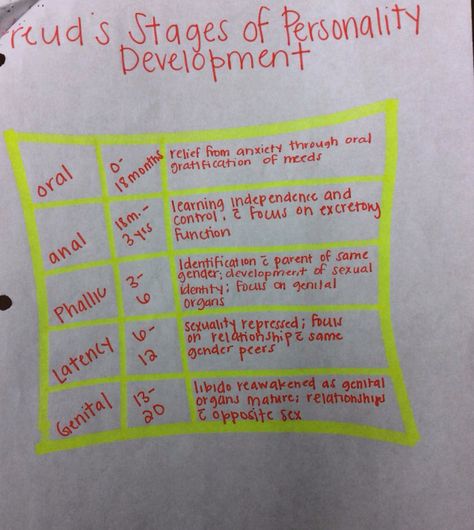 Freud's Stages of Personality
Development
oral
0-
18 months
relief from anxiety through oral
gratification of needs
anal
18m.-
3 yrs
learning independence and
control, c̄ focus on excretory
function
Phallic
3-
6
Identification c̄ parent of same
gender; development of sexual
identity; focus on genital
organs
Latency
6-
12
sexuality repressed; focus
on relationship c̄ same
gender peers
Genital
13-
20
libido reawakened as genital
organs mature; relationships
c̄ opposite sex